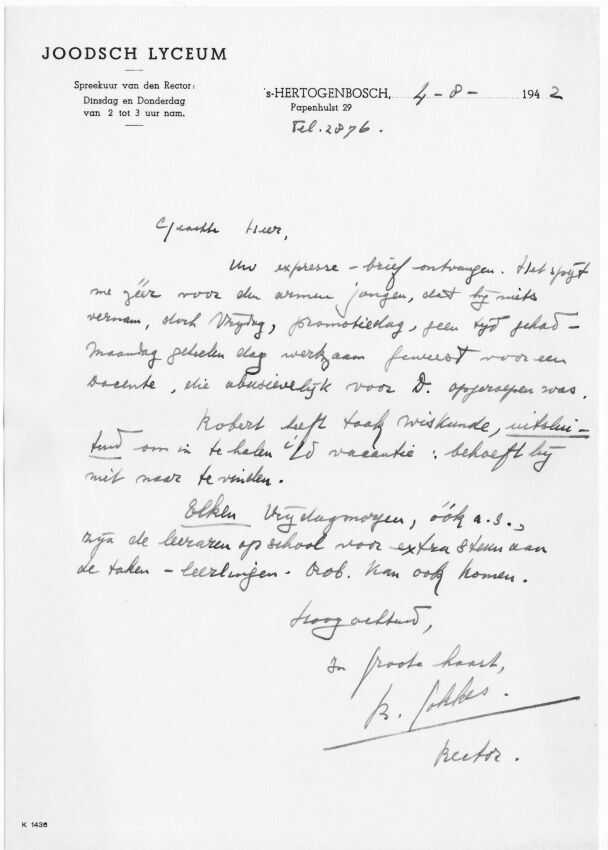 JOODSCH LYCEUM
Spreekuur van den Rector:
Dinsdag en Donderdag
van 2 tot 3 uur nam.
's-HERTOGENBOSCH, 4-8- 1942
Papenhulst 29
Tel. 2876.
Geachte Heer,
Uw expresse-brief ontvangen. Het spijt
me zéér voor den armen jongen, dat hij niets
vernam, doch Vrijdag, promotiedag, geen tijd gehad -
Maandag geheelen dag werkzaam geweest voor een
Docente, die abusievelijk voor D. opgeroepen was.
Robert heeft taak wiskunde, uitslui-
tend om in te halen i/d vacantie: behoeft hij
niet naar te vinden.
Elken Vrijdagmorgen, óók a.s.,
zijn de leeraren op school voor extra steun aan
de taken-leerlingen. Rob. kan ook komen.
Hoogachtend,
In groote haast,
Rector.
K 1436